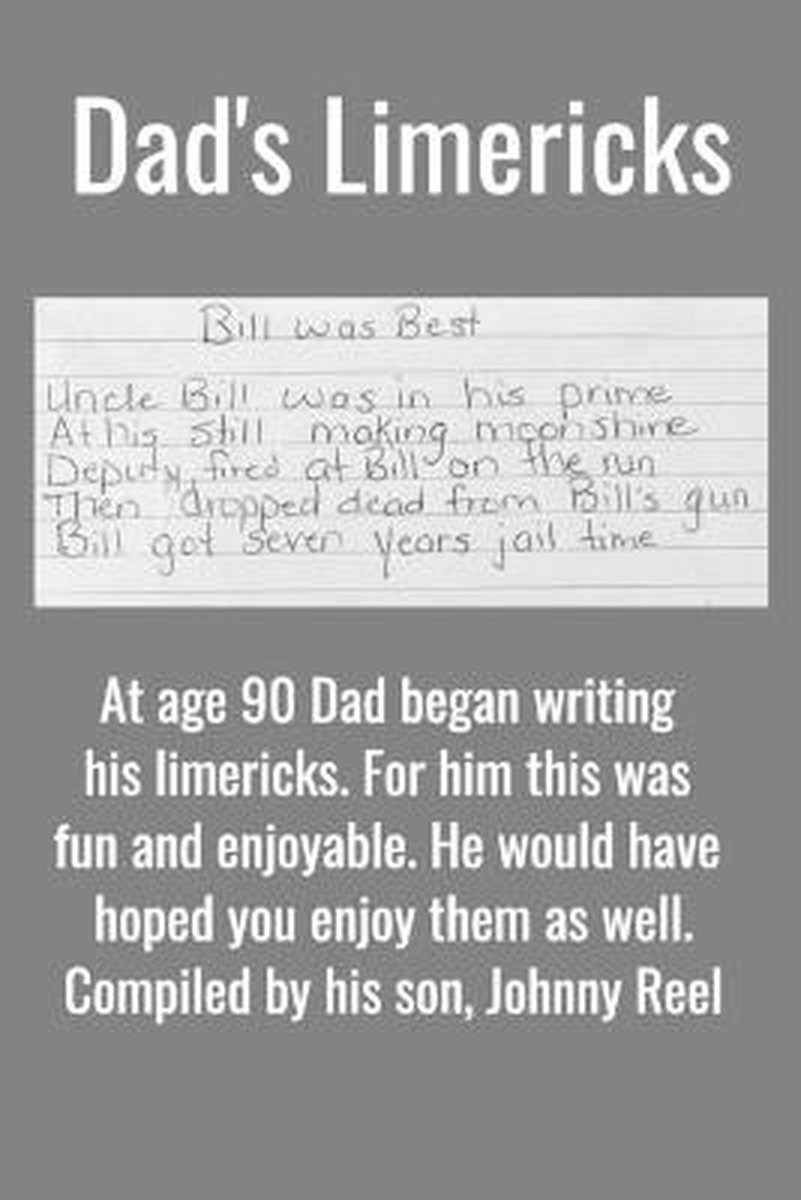 Dad's Limericks
Bill was Best
Uncle Bill was in his prime
At his still making moonshine
Deputy fired at Bill on the run
Then dropped dead from Bill's gun
Bill got seven years jail time
At age 90 Dad began writing
his limericks. For him this was
fun and enjoyable. He would have
hoped you enjoy them as well.
Compiled by his son, Johnny Reel